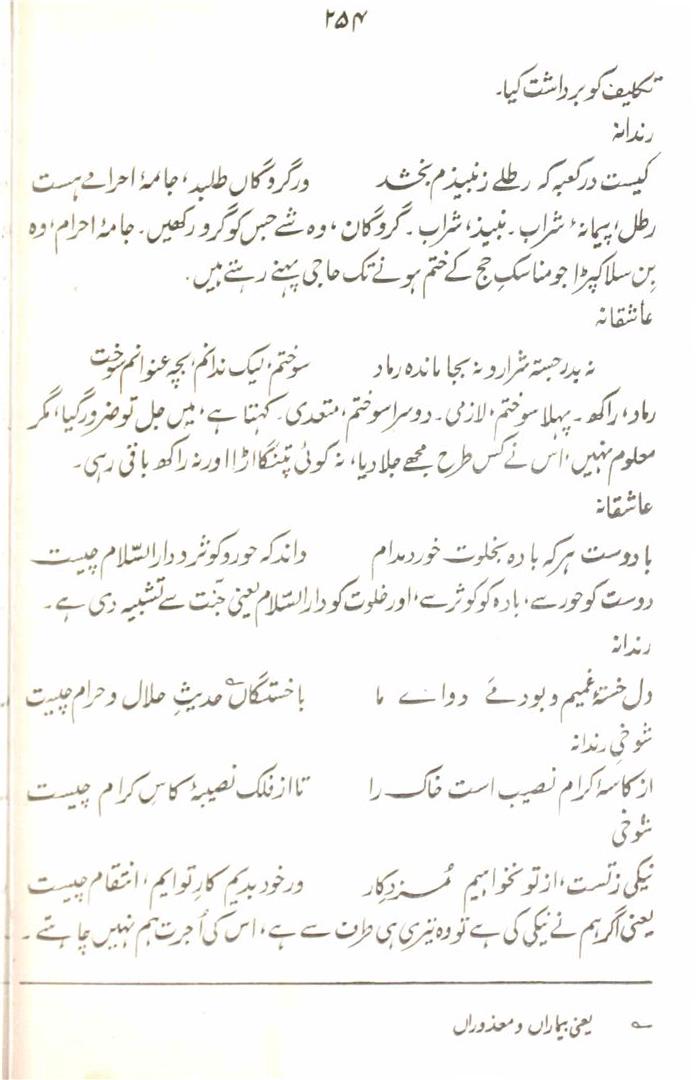 ۲۵۴
تکلیف کو برداشت کیا۔
رندانہ
کیست در کعبہ کہ رطلے ز نبیذم بخشد ور گروگاں طلبد، جامۂ احرامے ہست
رطل، پیمانۂ شراب۔ نبیذ، شراب۔ گروگان، وہ شے جس کو گرو رکھیں۔ جامۂ احرام، وہ
بِن سلا کپڑا جو مناسکِ حج کے ختم ہونے تک حاجی پہنے رہتے ہیں۔
عاشقانہ
نہ بدر جستہ شرار و نہ بجا ماندہ رماد سوختم، لیک ندانم، بچہ عنوانم سوخت
رماد، راکھ۔ پہلا سوختم، لازمی۔ دوسرا سوختم، متعدی۔ کہتا ہے، میں جل تو ضرور گیا، مگر
معلوم نہیں، اس نے کس طرح مجھے جلا دیا، نہ کوئی پتنگا اڑا اور نہ راکھ باقی رہی۔
عاشقانہ
با دوست ہر کہ بادہ بخلوت خورد مدام داند کہ حور و کوثر و دار السّلام چیست
دوست کو حور سے، بادہ کو کوثر سے، اور خلوت کو دار السّلام یعنی جنّت سے تشبیہ دی ہے۔
رندانہ
دل خستۂ غمیم و بود مے دواے ما با خستگاں؎ حدیثِ حلال و حرام چیست
شوخیِ رندانہ
از کاسۂ کرام نصیب است خاک را تا از فلک نصیبۂ کاسِ کرام چیست
شوخی
نیکی ز تست، از تو نخواہیم مُزدِ کار ور خود بدیم کارِ تو ایم، انتقام چیست
یعنی اگر ہم نے نیکی کی ہے تو وہ تیری ہی طرف سے ہے، اس کی اُجرت ہم نہیں چاہتے۔
؎ یعنی بیماراں و معذوراں